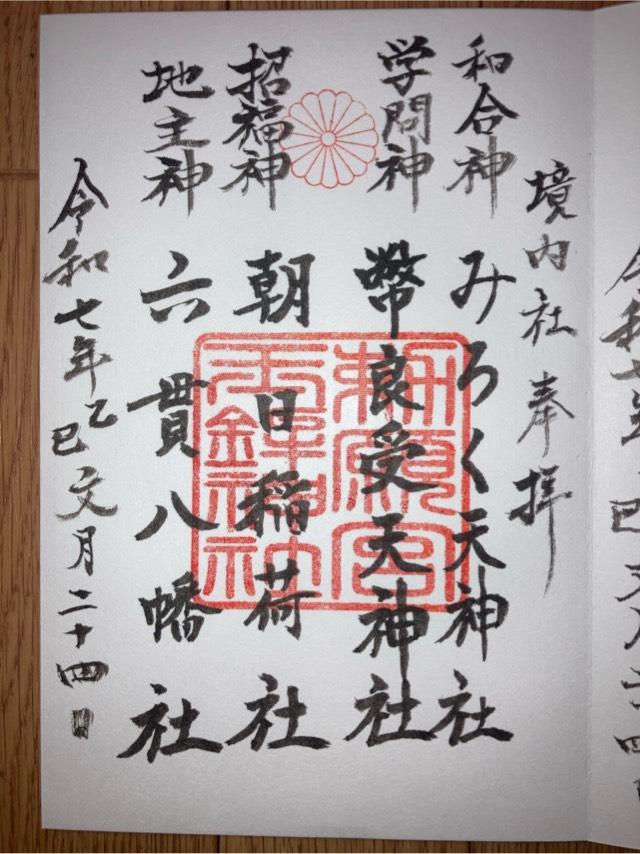 境内社奉拝
和合神 みろく天神社
学問神 幣良受天神社
招福神 朝日稲荷社
地主神 六貫八幡社
令和七年乙巳文月二十四日